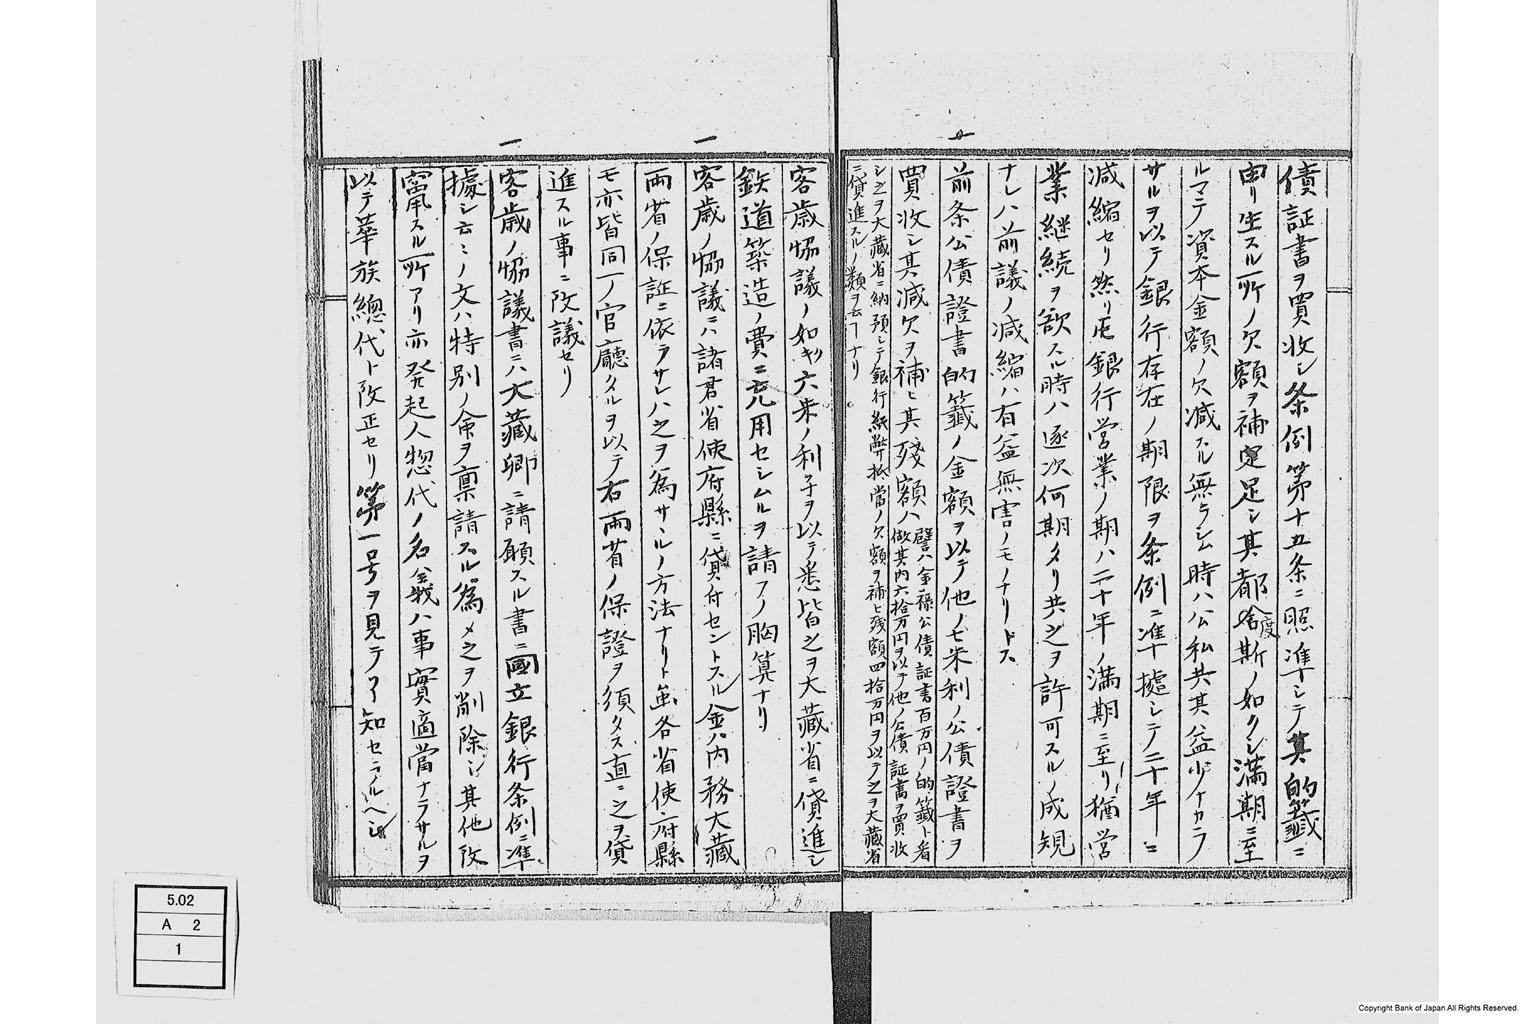 債証書ヲ買收シ条例第十五条ニ照凖シテ其的籤ニ
由リ生スル所ノ欠額ヲ補寔足シ其都度恰斯ノ如クシ満期ニ至
ルマテ資本金額ノ欠減スル無ラシム時ハ公私共其益少ナカラ
サルヲ以テ銀行存在ノ期限ヲ条例ニ准拠シテ二十年ニ
減縮セリ然リ𪜈銀行営業ノ期ハ二十年ノ満期ニ至リ猶営
業継続ヲ欲スル時ハ逐次何期タリ共之ヲ許可スルノ成規
ナレハ前議ノ減縮ハ有益無害ノモノナリトス
一
前条公債證書的籤ノ金額ヲ以テ他ノ七朱利ノ公債證書ヲ
買收シ其減欠ヲ補ヒ其残額ハ
譬ハ金禄公債証書百万円ノ的籤ト看
做其内六拾万円ヲ以テ他ノ公債証書ヲ買收
シ之ヲ大藏省ニ納預シテ銀行紙幣抵当ノ欠額ヲ補ヒ残額四拾万円ヲ以テ之ヲ大藏省
ニ貸進スルノ類ヲ云フナリ。
客歳協議ノ如ク六朱ノ利子ヲ以テ悉皆之ヲ大藏省ニ貸進シ
鉄道築造ノ費ニ充用セシムルヲ請フノ胸算ナリ
一
客歳ノ協議ニハ諸君省使府縣ニ貸付セントスル金ハ内務大藏
両省ノ保証ニ依ラサレハ之ヲ為サヽルノ方法ナリト虽各省使府縣
モ亦皆同一ノ官廳タルヲ以テ右両省ノ保證ヲ須タス直ニ之ヲ貸
進スル事ニ改議セリ
一
客歳ノ協議書ニハ大藏卿ニ請願スル書ニ國立銀行条例ニ準
據シ云々ノ文ハ特別ノ命ヲ禀請スル為メ之ヲ削除シ其他改
竄スル所アリ亦発起人惣代ノ名義ハ事實適當ナラサルヲ
以テ華族總代ト改正セリ第一号ヲ見テ知セラルヘシ
5.02
A 2
1
Copyright Bank of Japan All Rights Reserved.